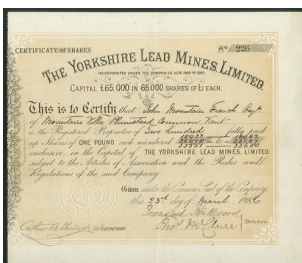 CERTIFICATE OF SHARES
No 226
THE YORKSHIRE LEAD MINES, LIMITED.
INCORPORATED UNDER THE COMPANIES ACTS 1862 TO 1880
CAPITAL £65,000 IN 65,000 SHARES OF £1 EACH.
This is to Certify that John Mountain French Esqre
of Mountain Villa Plumstead Common Kent
is the Registered Proprietor of Two hundred fully paid
up Shares of ONE POUND each numbered
inclusive, in the Capital of THE YORKSHIRE LEAD MINES, LIMITED.
subject to the Articles of Association and the Rules and
Regulations of the said Company.
Given under the Common Seal of the Company
this 23rd day of March 1886
Directors